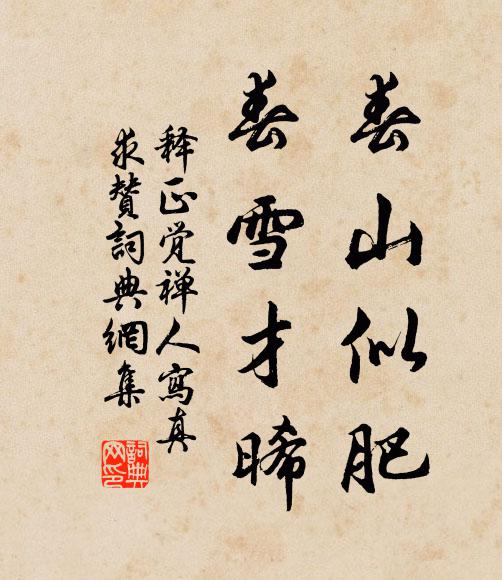 春山似肥
春雪才晞
释正觉禅人寫真
求赞詞典網集
詞典
网印